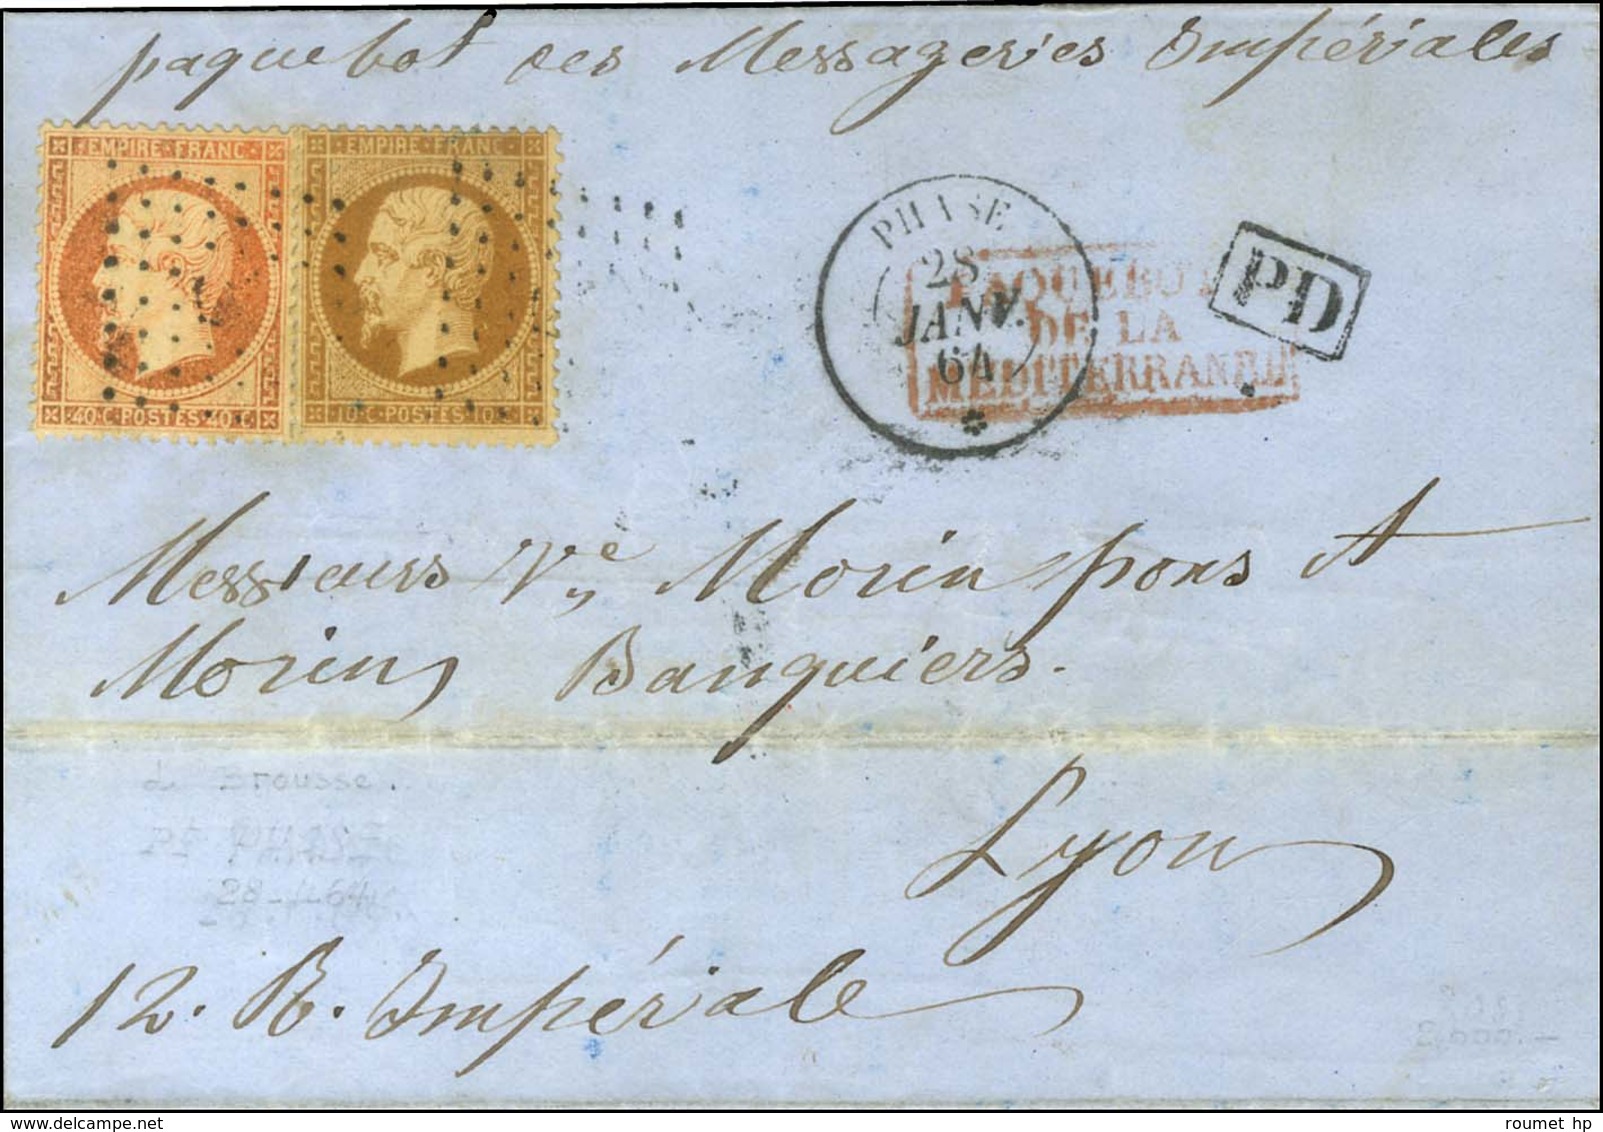 paquebot des Messageries Impériales
EMPIRE FRANC
40.C POSTES 40.C
EMPIRE FRANC
10.C POSTES 10.C
PHASE
28
JANV.
64
PAQUEBOT
DE LA
MEDITERRANEE
PD
Messieurs Vve Morin pons &
Morin, Banquiers.
de Brousse.
Pt PHASE
28-1-64
Lyon
12. R. Impériale
2,000.-
roumet hp